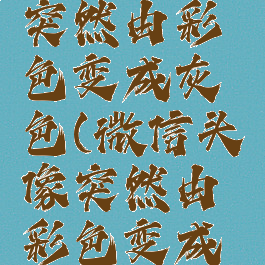 突然由彩
色变成灰
色(微信头
像突然由
彩色变成